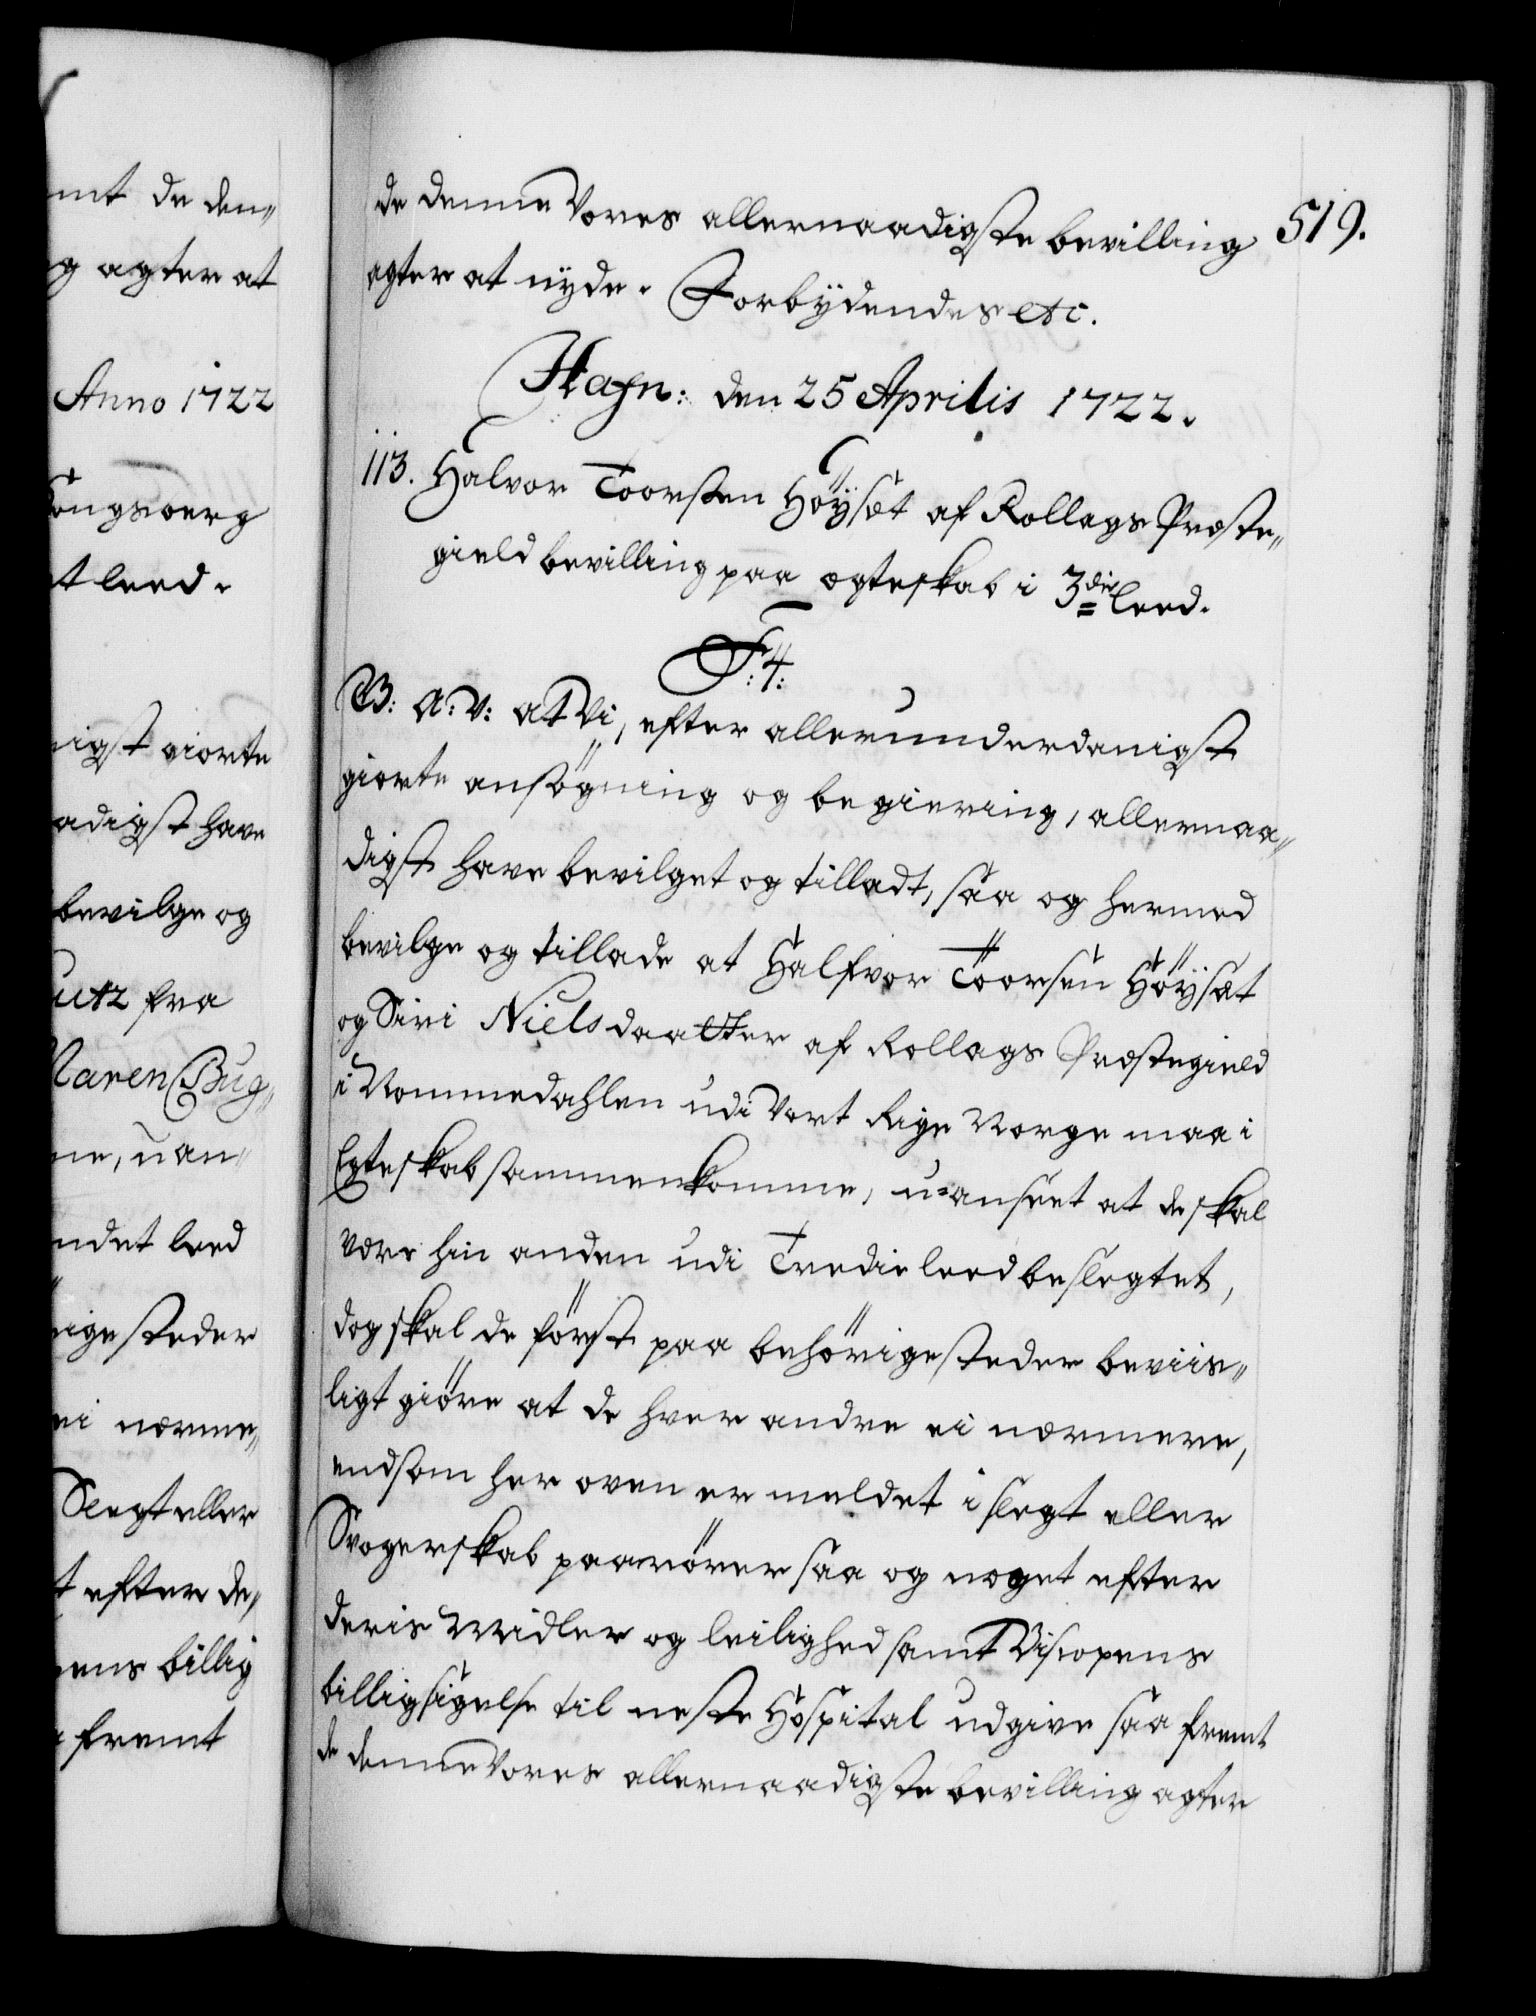 mt de den„
g agter at
Anno 1722
ongsberg
t leed.
nigst giorte
adigst have
bevilge og
utz fra
Maren Bug„
ne, uan„
ndet leed
rige steder
ei nærme„
Slegt eller
t efter de„
ens billig
fremt
519.
de denne Vores allernaadigste bevilling
agter at nÿde. Forbÿdendes etc.
Hafn: den 25 Aprilis 1722.
113. Halvor Toorsen Höÿsæt af Rollags Præste„
gield bevilling paa ægteskab i 3die leed.
F: 4:
G: A: V: at Vi, efter allerunderdanigst
giorte ansögning og begiering, allernaa„
digst have bevilget og tilladt, saa og hermed
bevilge og tillade at Halfvor Toorsen Höÿsæt
og Siri Nielsdaatter af Rollags Præstegield
i Nommedahlen udi Vort Rige Norge maa i
Egteskab sammenkomme, u-anseet at de skal
være hin anden udi Tredie leed beslegtet,
dog skal de först paa behörige steder beviis„
ligt giöre at de hver andre ei nærmere,
end som her oven er meldet i slegt eller
Svogerskab paarörer saa og noget efter
deris Midler og leilighed samt Biscopens
billigsigelse til neste Hospital udgive saa fremt
de denne Vores allernaadigste bevilling agter